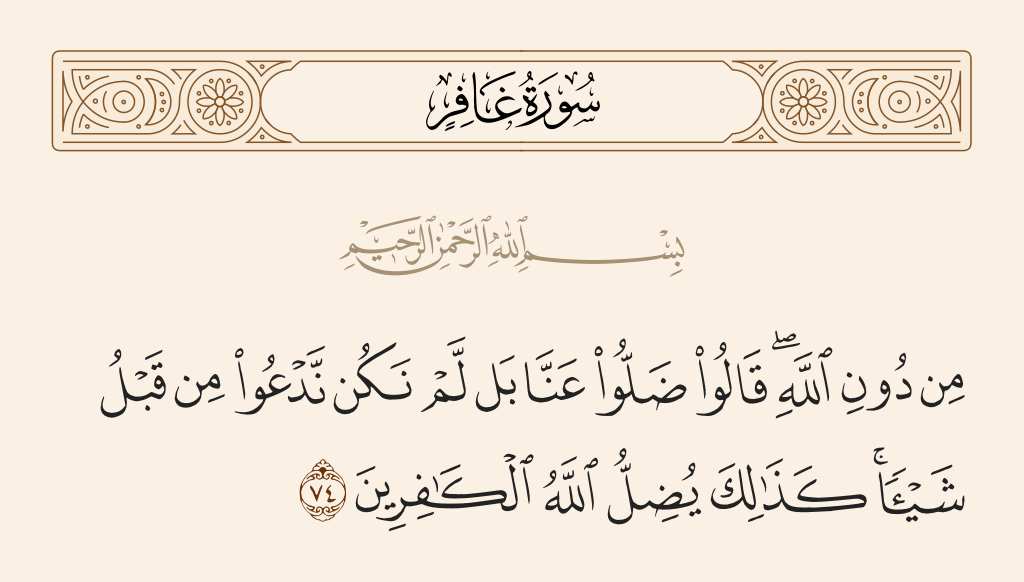 سُورَةُ غَافِرٍ
بِسْمِ ٱللَّهِ ٱلرَّحْمَٰنِ ٱلرَّحِيمِ
مِن دُونِ ٱللَّهِ ۖ قَالُوا۟ ضَلُّوا۟ عَنَّا بَل لَّمْ نَكُن نَّدْعُوا۟ مِن قَبْلُ
شَيْـًٔا ۚ كَذَٰلِكَ يُضِلُّ ٱللَّهُ ٱلْكَـٰفِرِينَ ٧٤